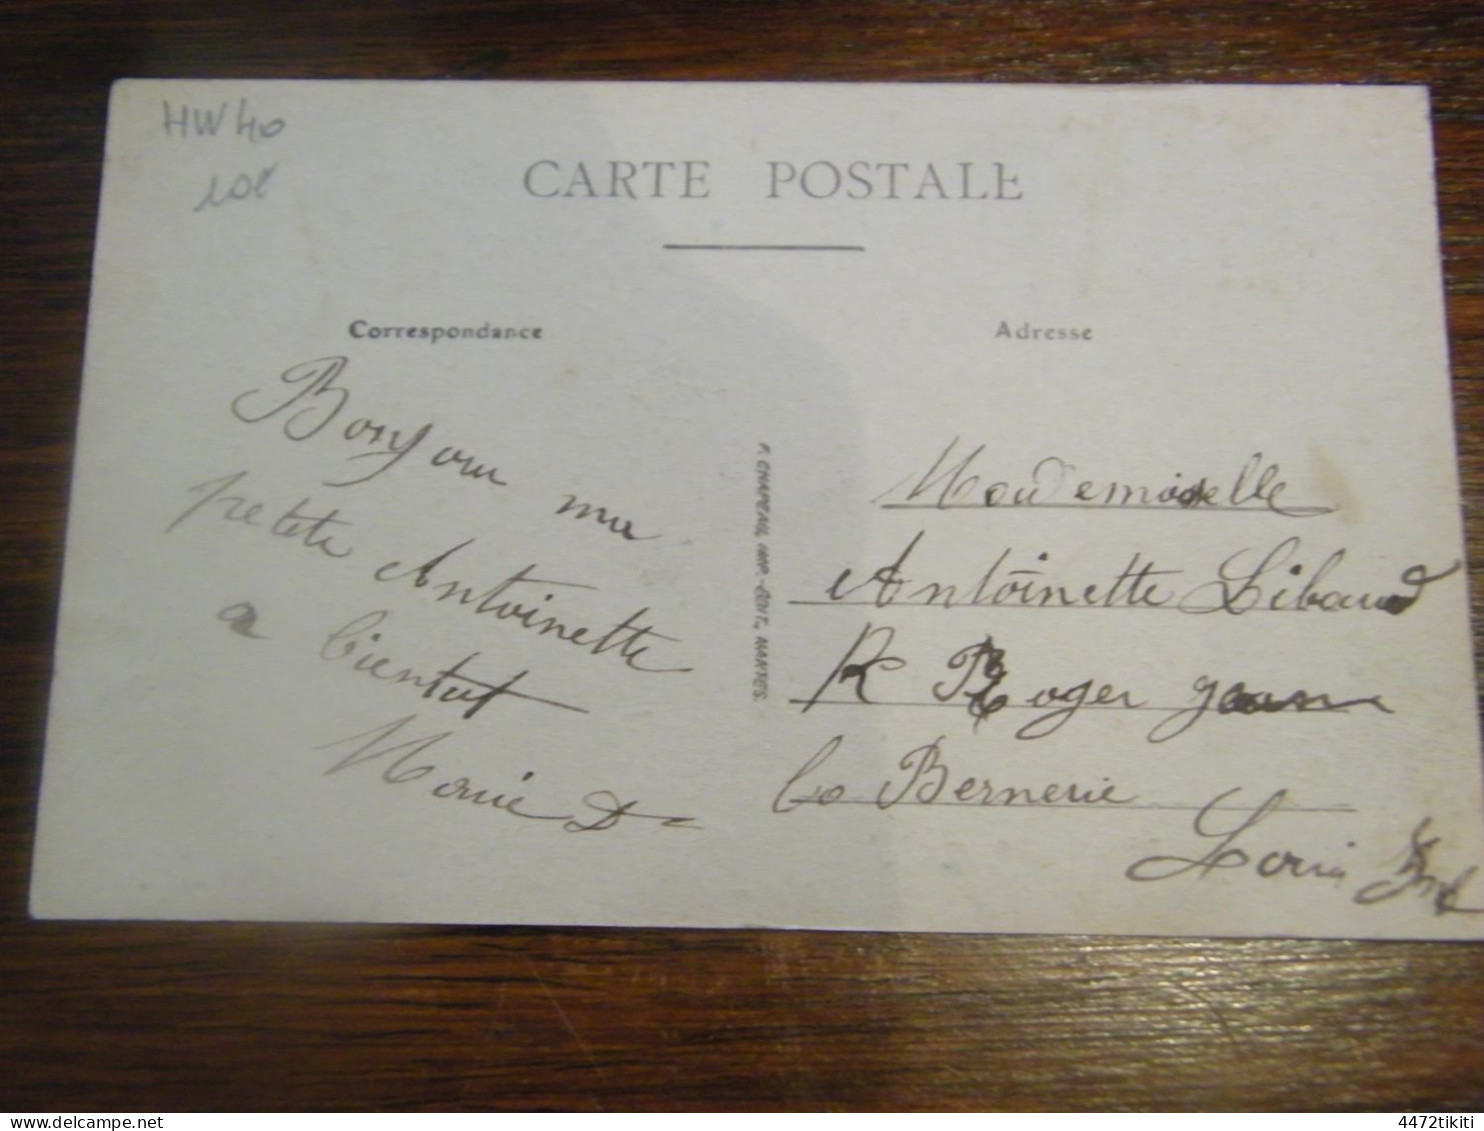 HW40
10€
CARTE POSTALE
Correspondance
Bonjour ma
petite Antoinette
a bientot
Marie D
F. CHAPEAU, IMP.-EDIT., NANTES.
Adresse
Mademoiselle
Antoinette Libaud
R Roger
la Bernerie
Loire Inf
4472tikiti